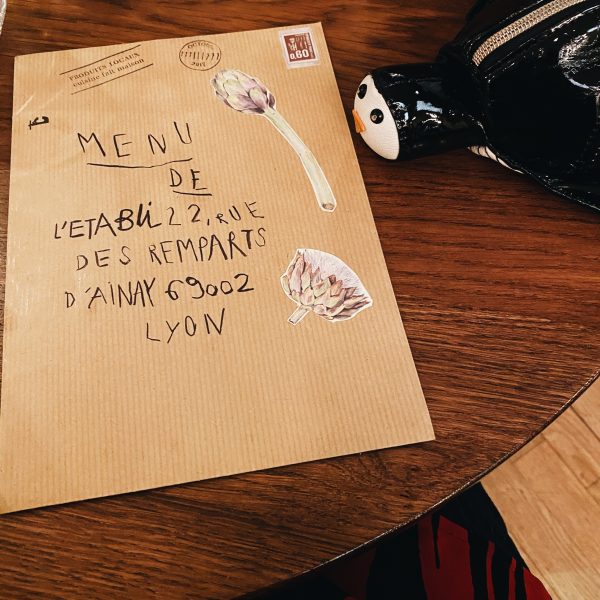 PRODUITS LOCAUX
cuisine fait maison
OCTOBRE
0.60
MENU
DE
L'ETABLi 22, RUE
DES REMPARTS
D'AiNAY 69002
LYON